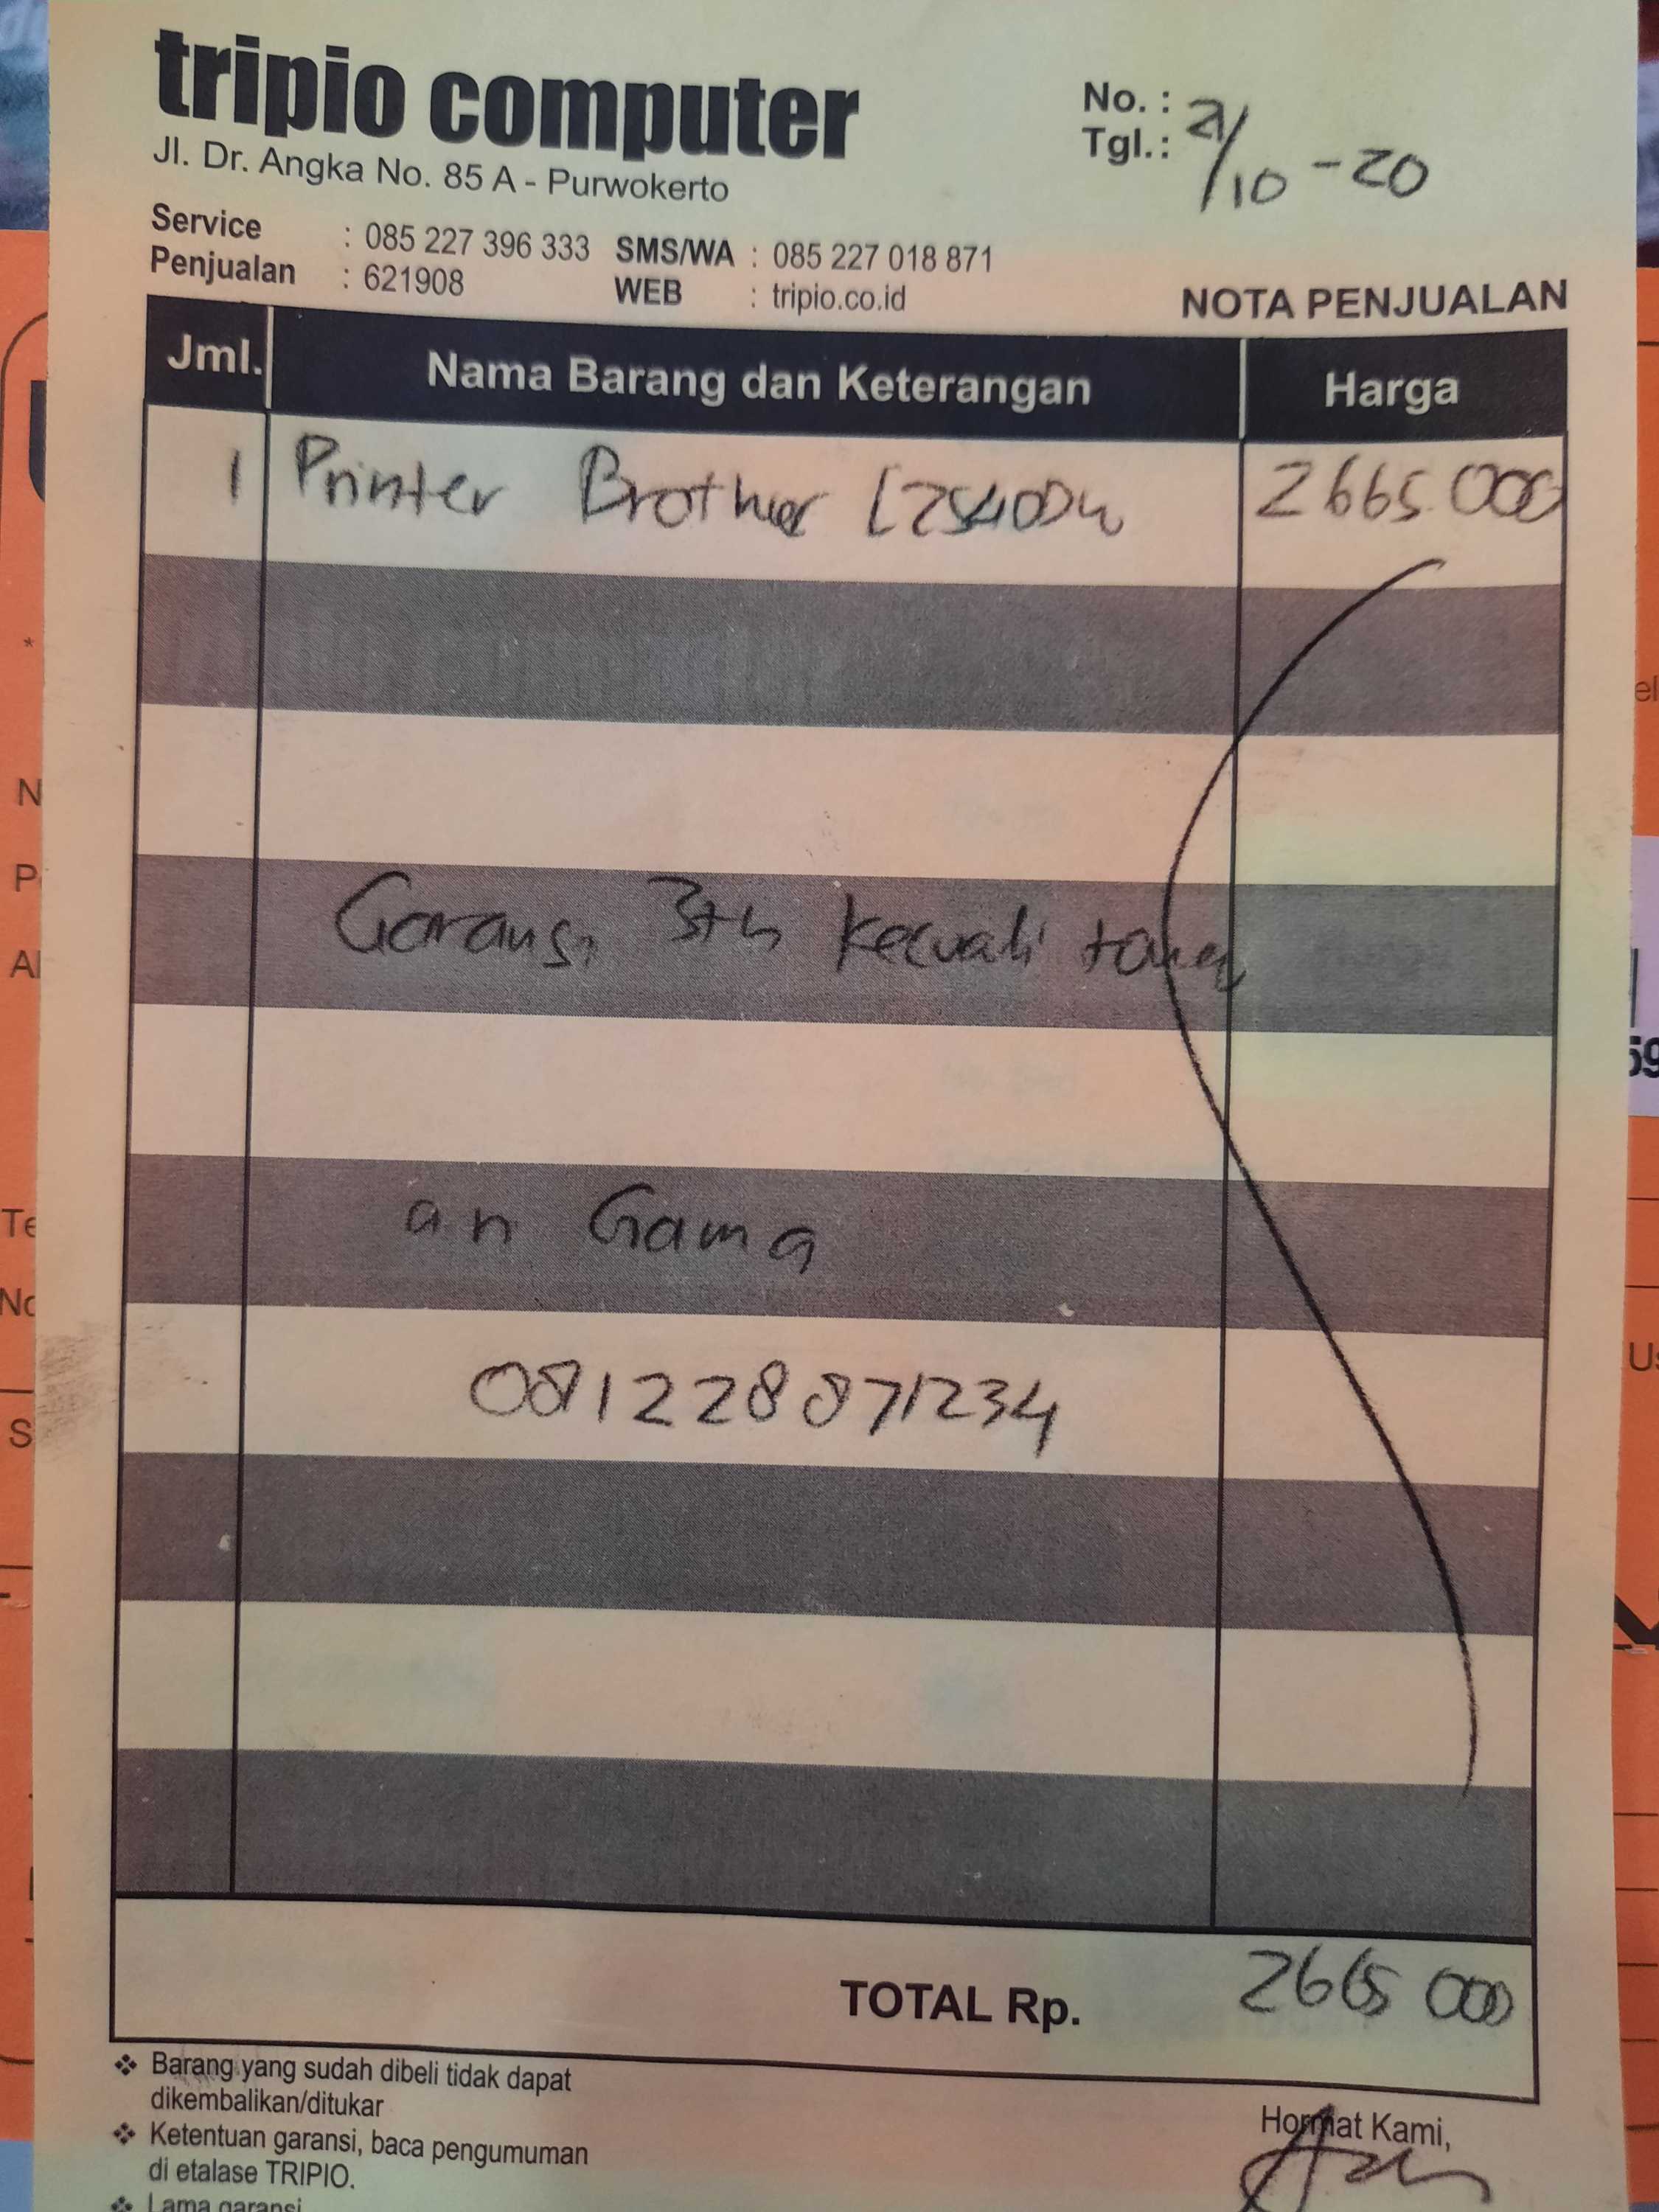 tripio computer
Jl. Dr. Angka No. 85 A - Purwokerto
No. :
Tgl. : 21/10 - 20
Service : 085 227 396 333 SMS/WA : 085 227 018 871
Penjualan : 621908 WEB : tripio.co.id
NOTA PENJUALAN
Jml. Nama Barang dan Keterangan Harga
1 Printer Brother L2540Dw 2665.000
Garansi 3th kecuali
an Gama
081228871234
TOTAL Rp. 2665 000
❖ Barang yang sudah dibeli tidak dapat
dikembalikan/ditukar
❖ Ketentuan garansi, baca pengumuman
di etalase TRIPIO.
❖ Lama garansi
Hormat Kami,